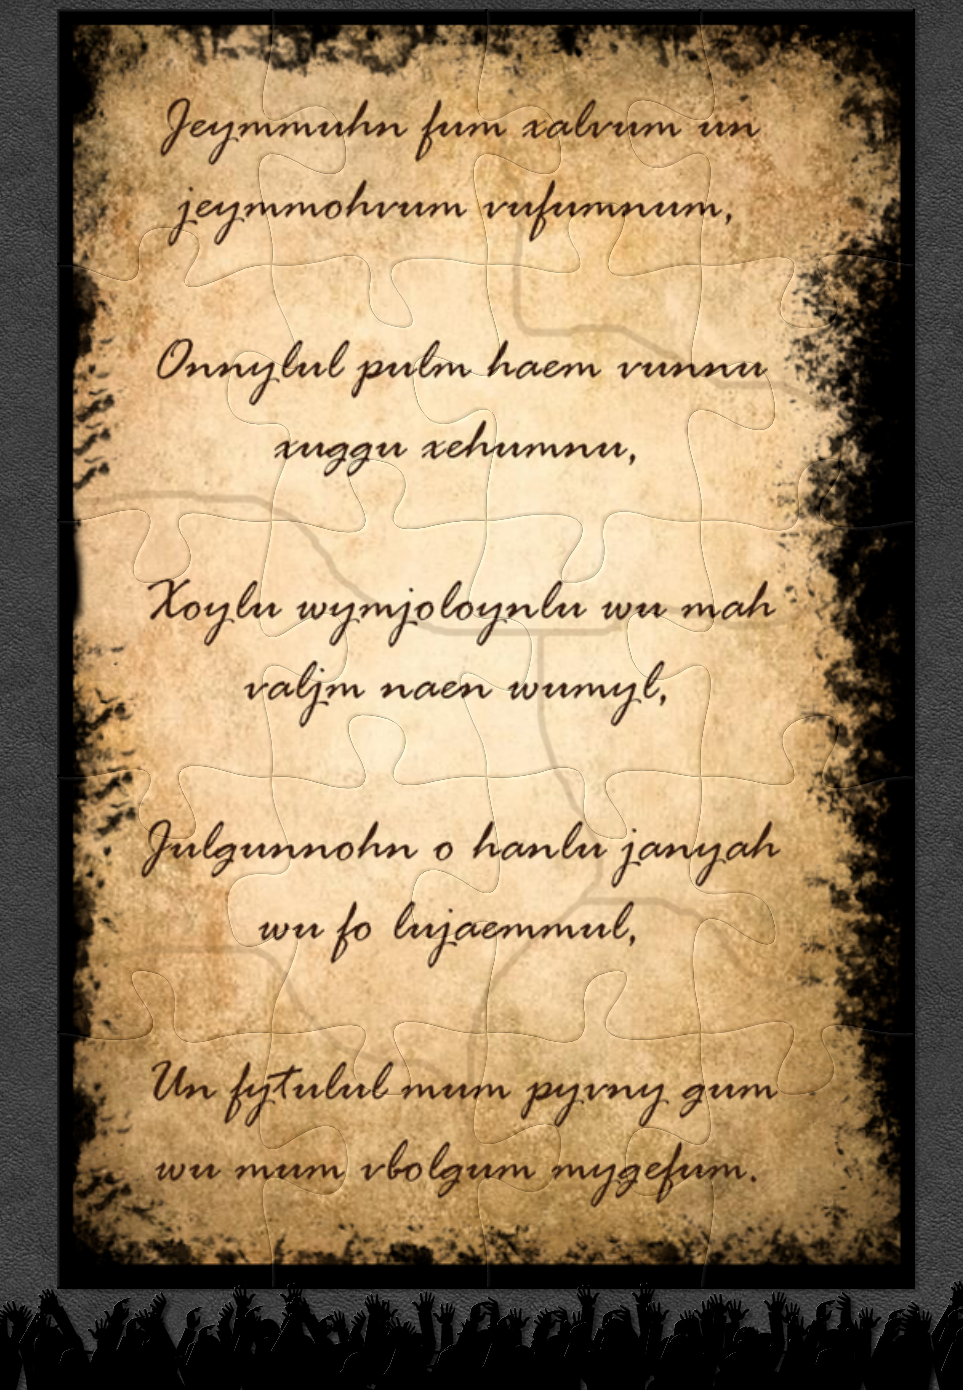 Jeymmuhn fum xalvum un
jeymmohvum vufumnum,
Onnylul pulm haem vunnu
xuggu xehumnu,
Xoylu wymjoloynlu wu mah
valjm naen wumyl,
Julgunnohn o hanlu janyah
wu fo lujaemmul,
Un fytulul mum pyvny gum
wu mum vbolgum mygefum.